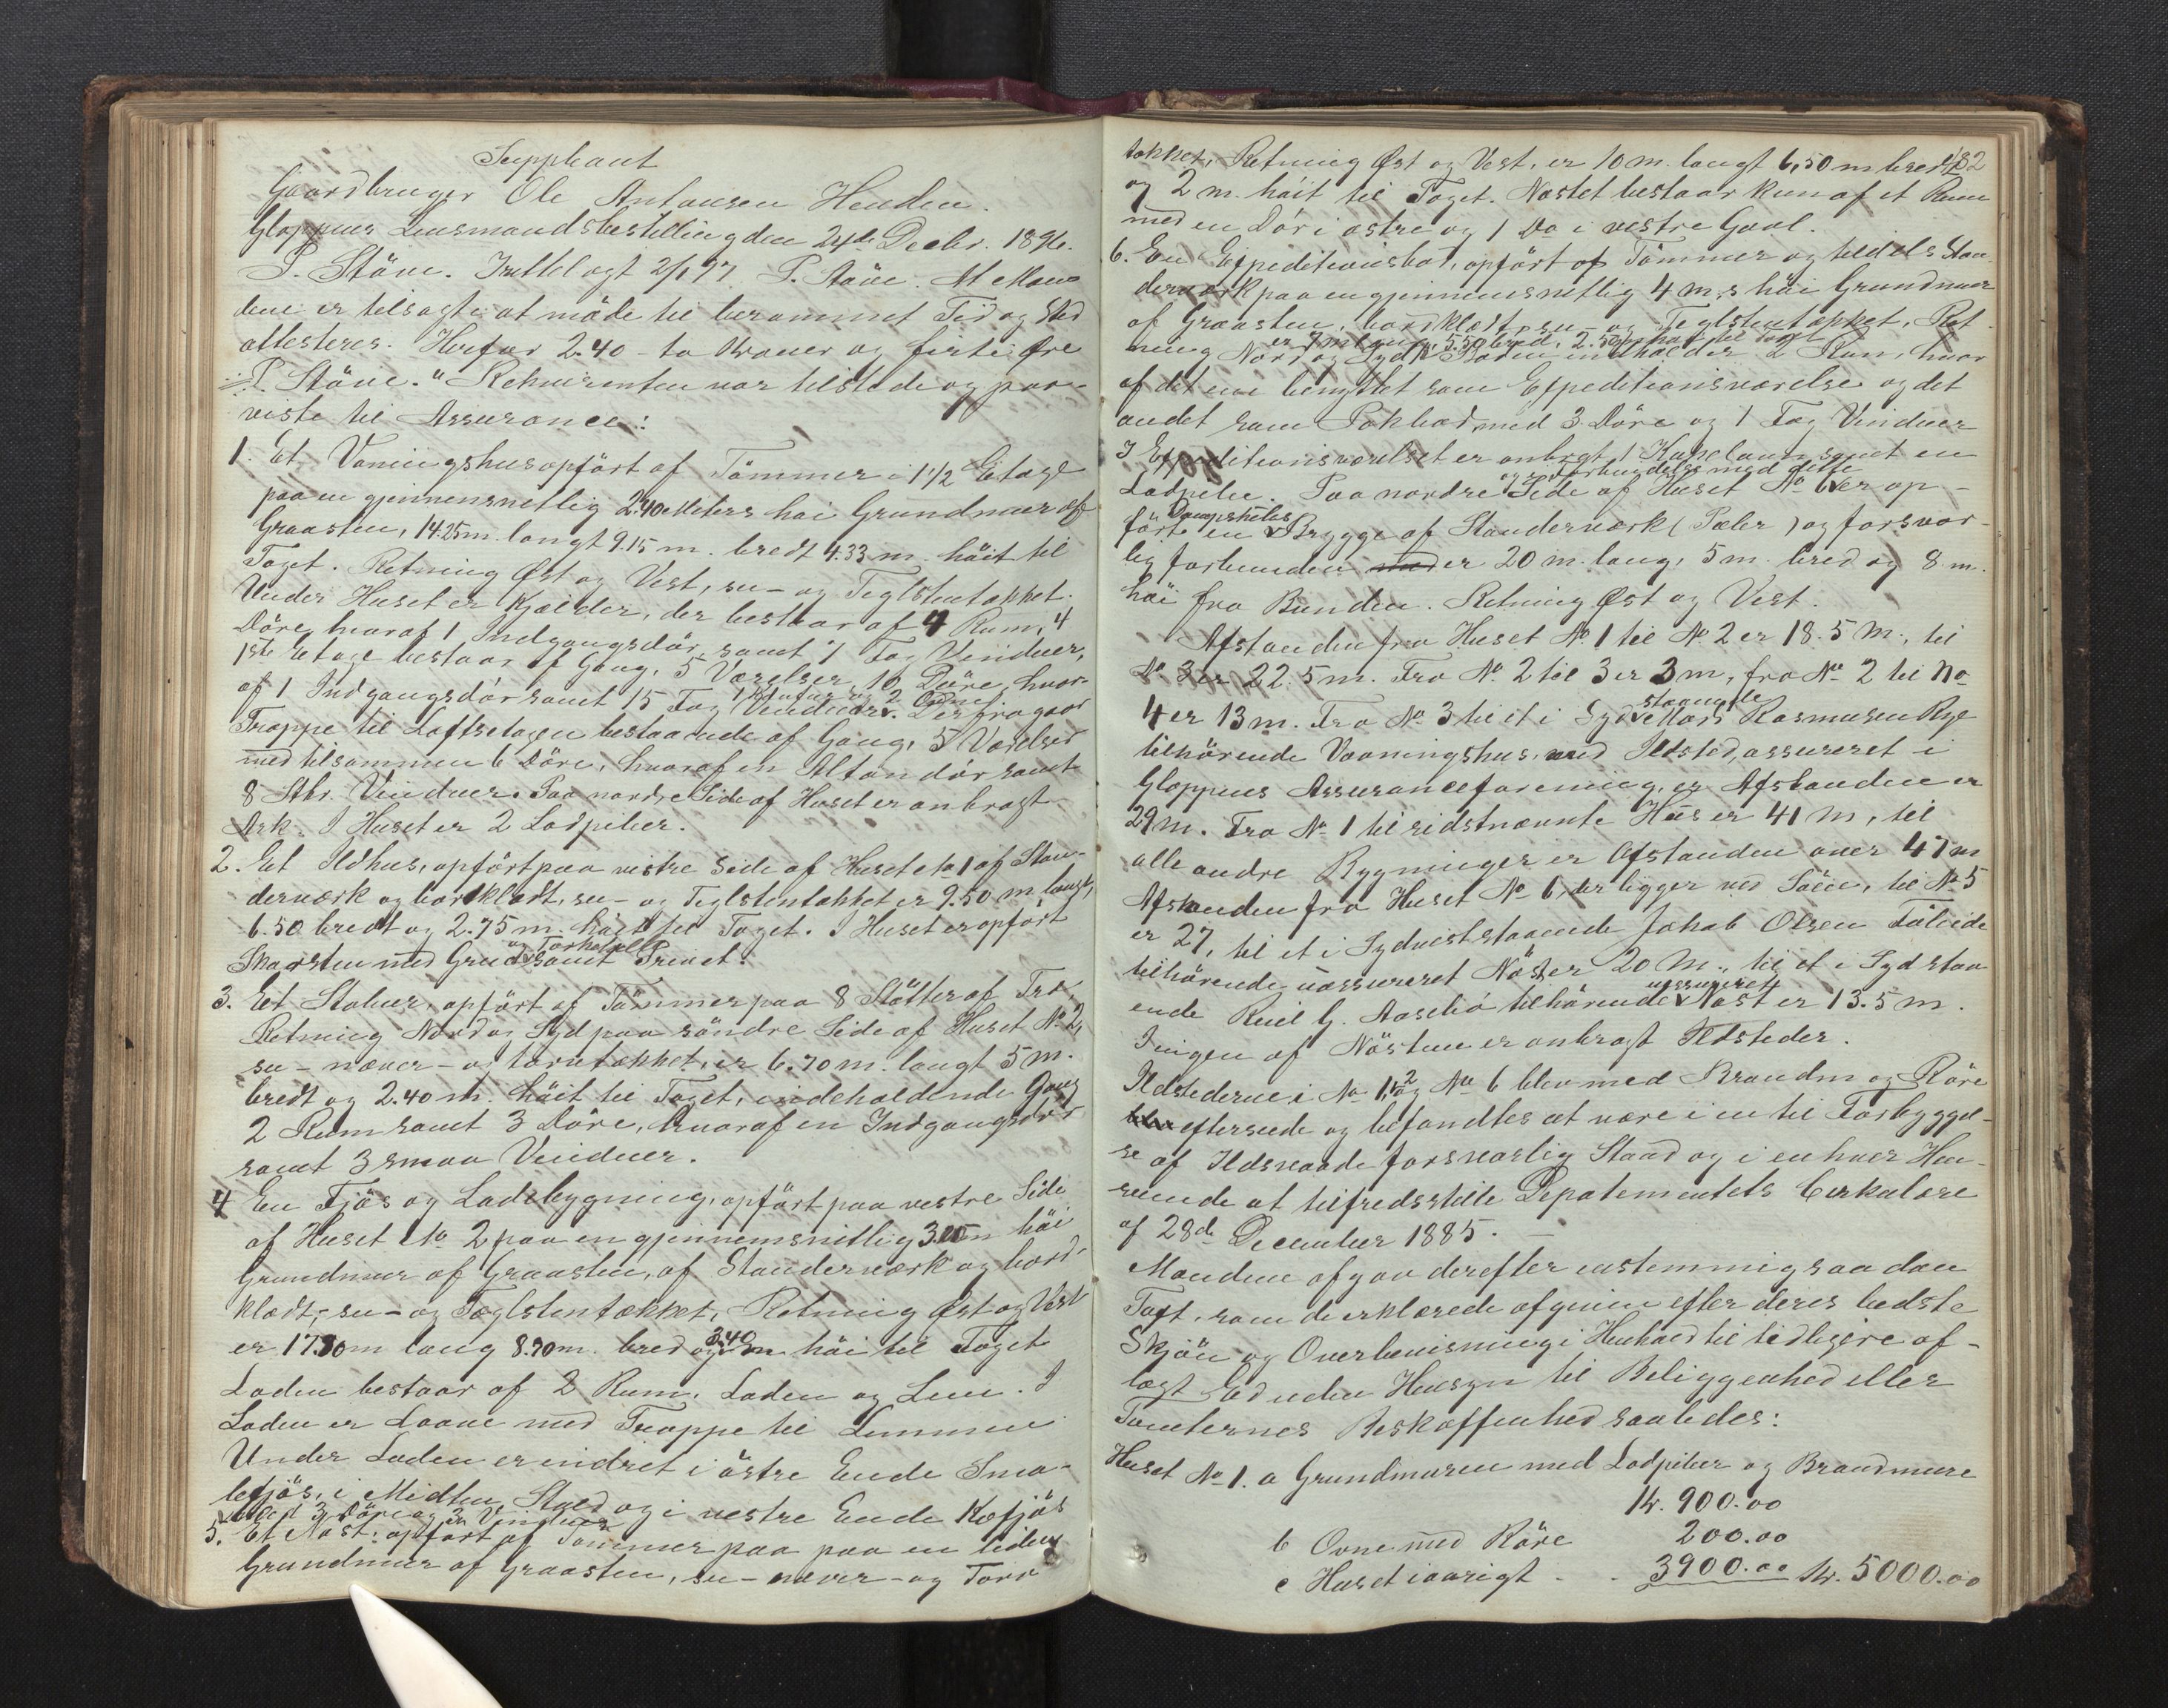 Suppleant
Gaardbruger Ole Antonsen Henden.
Gloppens Lensmandsbestilling den 24de Decbr. 1896.
P. Støve. Fremlagt 2/1 97. P. Støve. At Mæn-
dene er tilsagte at møde til berammet Tid og Sted
attesteres. Herfor 2.40 - to Kroner og firti Øre
P. Støve." Rekvirenten var tilstede og paa-
viste til Assurance:
1. Et Vaaningshus opført af Tømmer i 1 1/2 Etage
paa en gjennemsnitlig 2.40 Meters høi Grundmur af
Graasten, 14.25 m. langt 9.15 m. bredt 4.33 m. høit til
Taget. Retning Øst og Vest, su- og Teglstentækket.
Under Huset er Kjælder, der bestaar af 4 Rum, 4
Døre, hvoraf 1 Indgangsdør, samt 7 Fag Vinduer,
1ste Etage bestaar af Gang, 5 Værelser, 10 Døre, hvor-
af 1 Indgangsdør samt 15 Fag Vinduer. Derfra gaar
1 Komfur og 2 Ovne
Trappe til Loftsetagen bestaaende af Gang, 5 Værelser
med tilsammen 6 Døre, hvoraf en Altandør samt
8 Stkr. Vinduer. Paa nordre Side af Huset er anbragt
Ark. I Huset er 2 Lodpiber.
2. Et Ildhus, opført paa vestre Side af Huset No 1 af Stan-
derværk og bordklædt, su- og Teglstentækket er 9.50 m. langt,
6.50 bredt og 2.75 m. høit til Taget. I Huset er opført
Skorsten med Grue samt Privet.
3. Et Stabur, opført af Tømmer paa 8 Støtter af Træ,
Retning Nord og Syd paa søndre Side af Huset No 2,
su- næver- og torvtækket, er 6.70 m. langt 5 m.
bredt og 2.40 m. høit til Taget, indeholdende Gang
2 Rum samt 3 Døre, hvoraf en Indgangsdør
samt 3 smaa Vinduer.
4 En Fjøs og Ladebygning, opført paa vestre Side
af Huset No 2 paa en gjennemsnitlig 3.15 m høi
Grundmur af Graasten, af Standerværk og bord-
klædt, su- og Teglstentækket, Retning Øst og Vest
er 17.80 m lang 8.70 m. bred og 3.40 m høi til Taget
Laden bestaar af 2 Rum, Laden og Lem. I
Laden er Laave med Trappe til Lemmen
Under Laden er indret i østre Ende Sma-
lefjøs, i Midten Stald og i vestre Ende Kofjøs
med 3 Døre og 3 Vinduer
5. Et Nøst, opført af Tømmer paa paa en liden
Grundmur af Graasten, su- næver- og Torv
482
tækket, Retning Øst og Vest, er 10 m. langt 6,50 m bredt
og 2 m. høit til Taget. Nøstet bestaar kun af et Rum
med en Dør i østre og 1 Do i vestre Gavl.
6. En Expeditionsbod, opført af Tømmer og tildels Stan-
derværk paa en gjennemsnitlig 4 m.s høi Grundmur
af Graasten, bordklædt, su- og Teglstentækket, Ret-
er 7 m lang, 5.50 bred, 2.50 høi til Taget
ning Nord og Syd. Boden indeholder 2 Rum, hvor
af det ene benyttet som Expeditionsværelse og det
andet som Pakbod med 3 Døre og 1 Fag Vinduer
I Expeditionsværelset er anbragt 1 Kakelovn samt en
og i Forbindelse med dette
Lodpibe. Paa nordre Side af Huset No 6 er op-
Dampskibs
ført en Brygge af Standerværk (Pæler) og forsvar-
lig forbunden er 20 m. lang, 5 m. bred og 8 m.
høi fra Bunden. Retning Øst og Vest.
Afstanden fra Huset No 1 til No 2 er 18.5 m., til
No 3 er 22.5 m. Fra No 2 til 3 er 3 m, fra No 2 til No
staaende
4 er 13 m. Fra No 3 til et i Syd Mads Rasmusen Ryg
tilhørende Vaaningshus, med Ildsted, assureret i
Gloppens Assuranceforening, er Afstanden er
29 m. Fra No 1 til sidstnævnte Hus er 41 m, til
alle andre Bygninger er Afstanden over 47 m
Afstanden fra Huset No 6, der ligger ved Søen, til No 5
er 27, til et i Sydvest staaende Jakob Olsen
tilhørende uassureret Nøst er 20 m., til et i Syd staa-
uassureret
ende G. tilhørende Nøst er 13.5 m.
I ingen af Nøstene er anbragt Ildsteder.
Ildstederne i No 1, 2 og No 6 blev med Brandm og Røre
eftersede og befandtes at være i en til Forbyggel-
se af Ildsvaade forsvarlig Stand og i enhver Hen-
seende at tilfredsstille Depatementets Cirkulære
af 28de December 1885.
Mændene afgav derefter enstemmig saadan
Taxt, som de erklærede afgiven efter deres bedste
Skjøn og Overbevisning i Henhold til tidligere af-
lagt Ed uden Hensyn til Beliggenhed eller
Tomternes Beskaffenhed saaledes:
Huset No 1. a Grundmuren med Lodpiber og Brandmure
Kr. 900.00
b Ovne med Røre 200.00
c Huset iøvrigt - - 3900.00 Kr. 5000.00